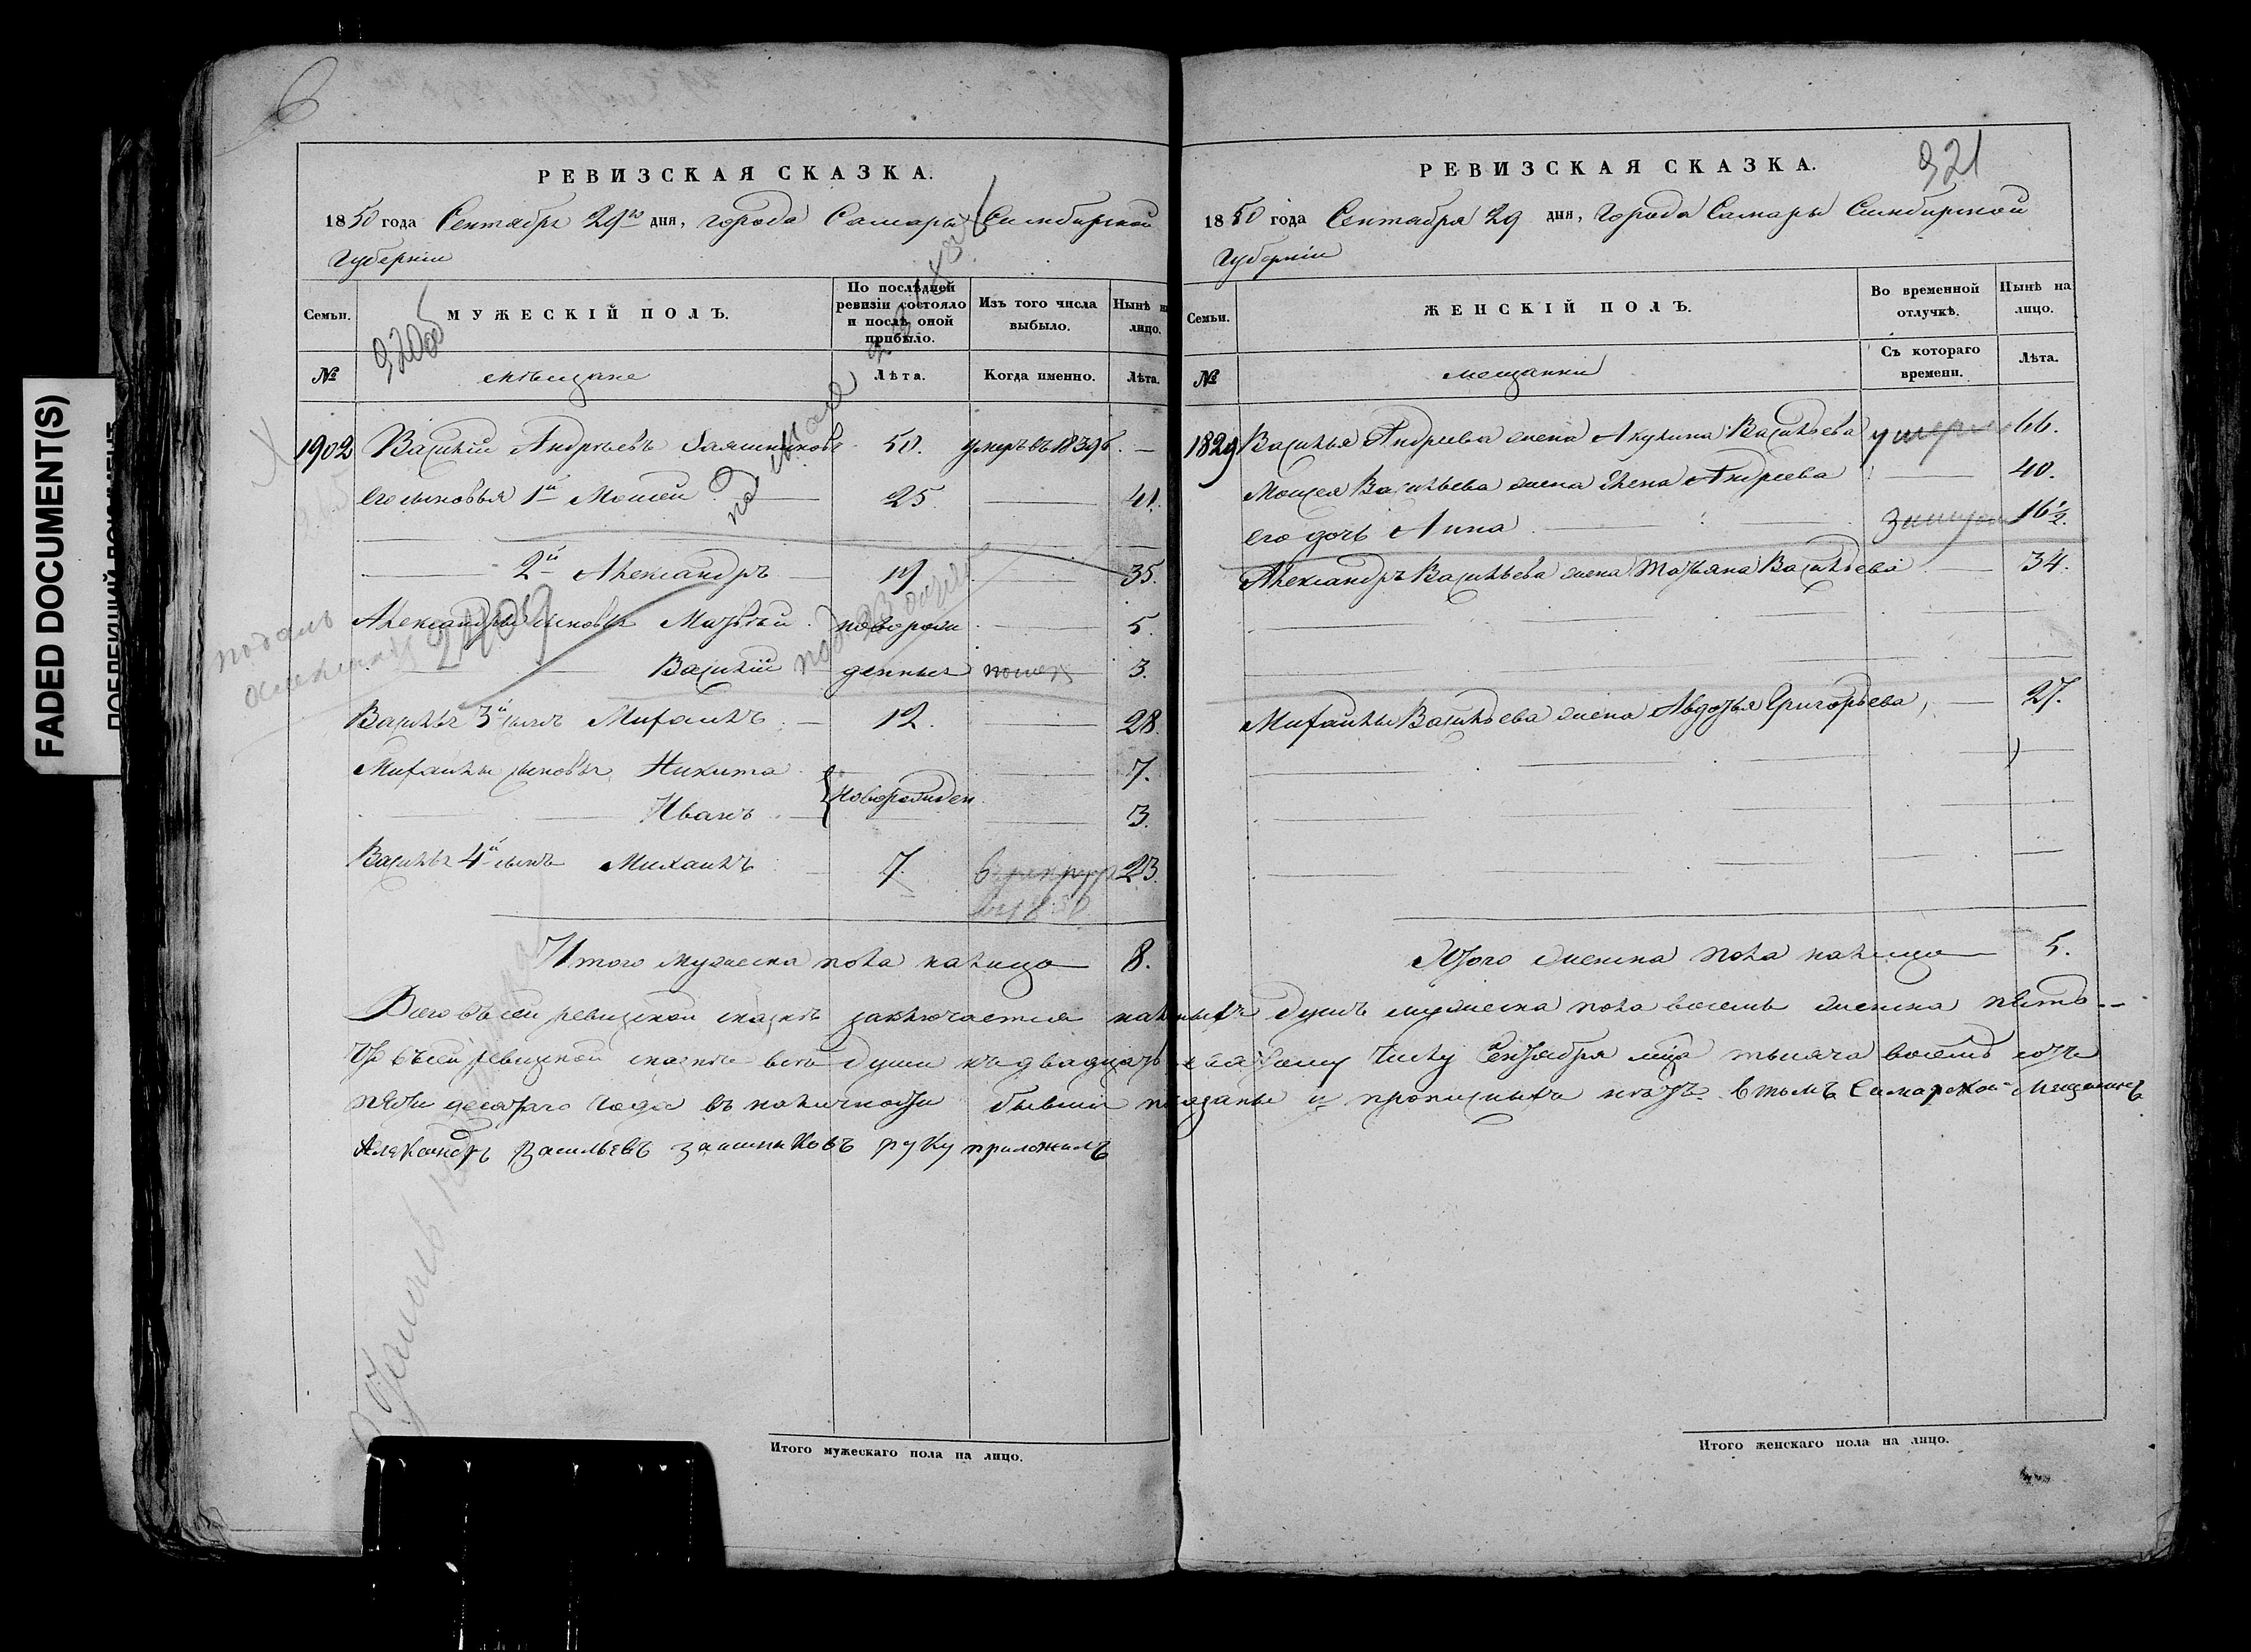 FADED DOCUMENT(S)
РЕВИЗСКАЯ СКАЗКА.
1850 года Сентября 29го дня, города Самары Симбирской
Губернiи
Семьи.
МУЖЕСКІЙ ПОЛЪ.
По послѣдней ревизіи состояло и послѣ оной прибыло.
Изъ того числа выбыло.
Нынѣ на лицо.
№
320об
мѣщане
Лѣта.
Когда именно.
Лѣта.
1902 Василiй Андреевъ Заяшниковъ 50. умеръ въ 1839 г. —
Его сыновья 1й Моисей — 25 — 41.
2й Александръ — 19 — 35.
Александры сыновья Матвѣй новорож — 5.
2409
подалъ
Василiй денныя 3.
Василья 3й сынъ Михаилъ — 12. — 28.
Михаилы сыновья Никита — 7.
Новорожден
Иванъ — 3.
Василья 4й сынъ Михаилъ 7. 23.
Итого мужеска пола налицо 8.
РЕВИЗСКАЯ СКАЗКА.
321
1850 года Сентября 29 дня, Города Самары Симбирской
Губернiи
Семьи.
ЖЕНСКІЙ ПОЛЪ.
Во временной отлучкѣ.
Нынѣ на лицо.
№
мещанки
Съ котораго времени.
Лѣта.
1829 Василья Андреева жена Акулина Васильева умерла 66.
Моисея Васильева жена Елена Андреева — 40.
его дочь Анна — замужем 16½.
Александръ Васильева жена Татьяна Васильева — 34.
Михаилы Васильева жена Авдотья Григорьева, — 27.
Итого женска пола налицо — 5.
Всего въ сей ревизской сказкѣ заключается наличныхъ душъ мужеска пола восемь женска пять —
Что въ сей ревизской сказкѣ всѣ души къ двадцать девятому числу Сентября мца тысяча восемь сотъ
пятидесятаго года въ наличности бывшiя показаны и прописныхъ нѣтъ. в томъ Самарской Мещанинъ
Александръ Васильевъ заяшниковъ руку приложилъ
Итого мужескаго пола на лицо.
Итого женскаго пола на лицо.